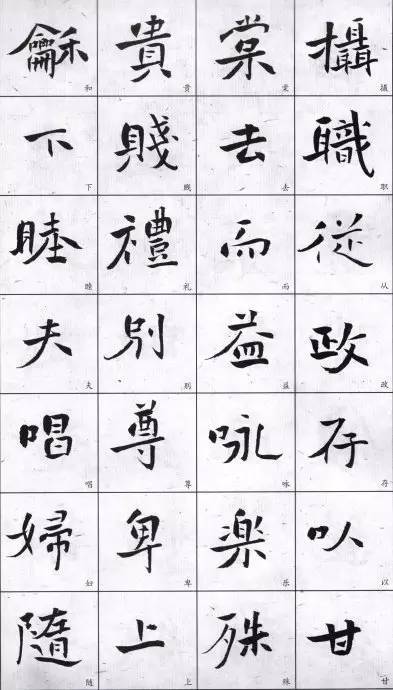 攝職從政存㕥甘
摄职从政存以甘
棠去而益咏楽殊
棠去而益咏乐殊
貴賤禮別尊卑上
贵贱礼别尊卑上
龢下睦夫唱婦隨
和下睦夫唱妇随